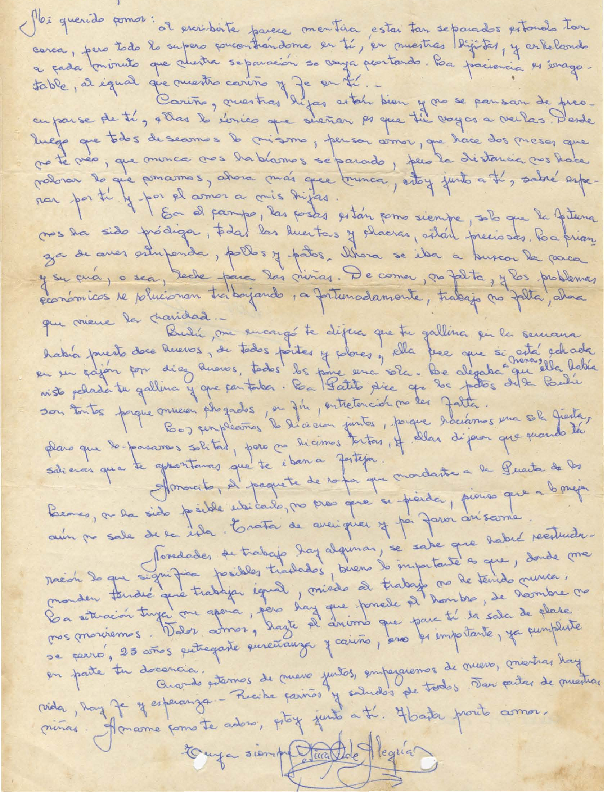 Mi querido amor:
Al escribirte parece mentira estar tan separados estando tan
cerca, pero todo lo supero concentrándome en tí, en nuestras hijitas, y anhelando
a cada minuto que nuestra separación se vaya acortando. La paciencia es inago-
table, al igual que nuestro cariño y fe en tí. --
Cariño, nuestras hijas están bien y no se cansan de preo-
cuparse de tí, ellas lo único que sueñan es que tú vayas a verlas. Desde
luego que todos deseamos lo mismo, pensar amor, que hace dos meses que
no te veo, que nunca nos habíamos separado, pero la distancia nos hace
valorar lo que amamos, ahora más que nunca, estoy junto a tí, sabré espe-
rar por tí y por el amor a mis hijas.
En el campo, las cosas están como siempre, solo que la fortuna
nos ha sido pródiga, todas las huertas y chacras, están preciosas. La crian-
za de aves estupenda, pollos y patos. Ahora se iba a buscar la vaca
y su cría, o sea, leche para las niñas. De comer, no falta, y los problemas
económicos se solucionan trabajando, afortunadamente, trabajo no falta, ahora
que viene la navidad. --
me encargó te dijera que tu gallina en la semana
había puesto doce huevos, de todos portes y colores, ella cree que se está echada
en un cajón con diez huevos, todos los pone una sola. Se alegaba que ella había
visto echada tu gallina y que cantaba. La Patita, dice que los patos de la
son tontos porque mueren ahogados, en fin, entretención no les falta.
Los cumpleaños lo hicieron juntos, porque hacíamos una sola fiesta,
claro que lo pasamos solitas, pero le hicimos tortas, y ellas dijeron que cuando tú
salieras que te aprontaras que te iban a festejar.
Amorcito, el paquete de ropa que mandaste a la Puerta de los
Leones, no ha sido posible ubicarlo, no creo que se pierda, pienso que a lo mejor
aún no sale de la isla. Trata de averiguar y por favor avísame.
Novedades de trabajo hay algunas, se sabe que habrá reestructu-
ración lo que significa posibles traslados, bueno lo importante es que, donde me
manden tendré que trabajar igual, miedo al trabajo no le tenido nunca.
La situación tuya me apena, pero hay que ponerle el hombro, de hambre no
nos moriremos. Valor amor, hazte el ánimo que para tí la sala de clase
se cerró, 25 años entregaste enseñanza y cariño, eso es importante, ya cumpliste
en parte tu docencia.
Cuando estemos de nuevo juntos, empezaremos de nuevo, mientras hay
vida, hay fe y esperanza -- Recibe cariños y saludos de todos. Van cartas de nuestras
niñas. Amame como te adoro, estoy junto a tí. Hasta pronto amor.
Tuya siempre de Alegría